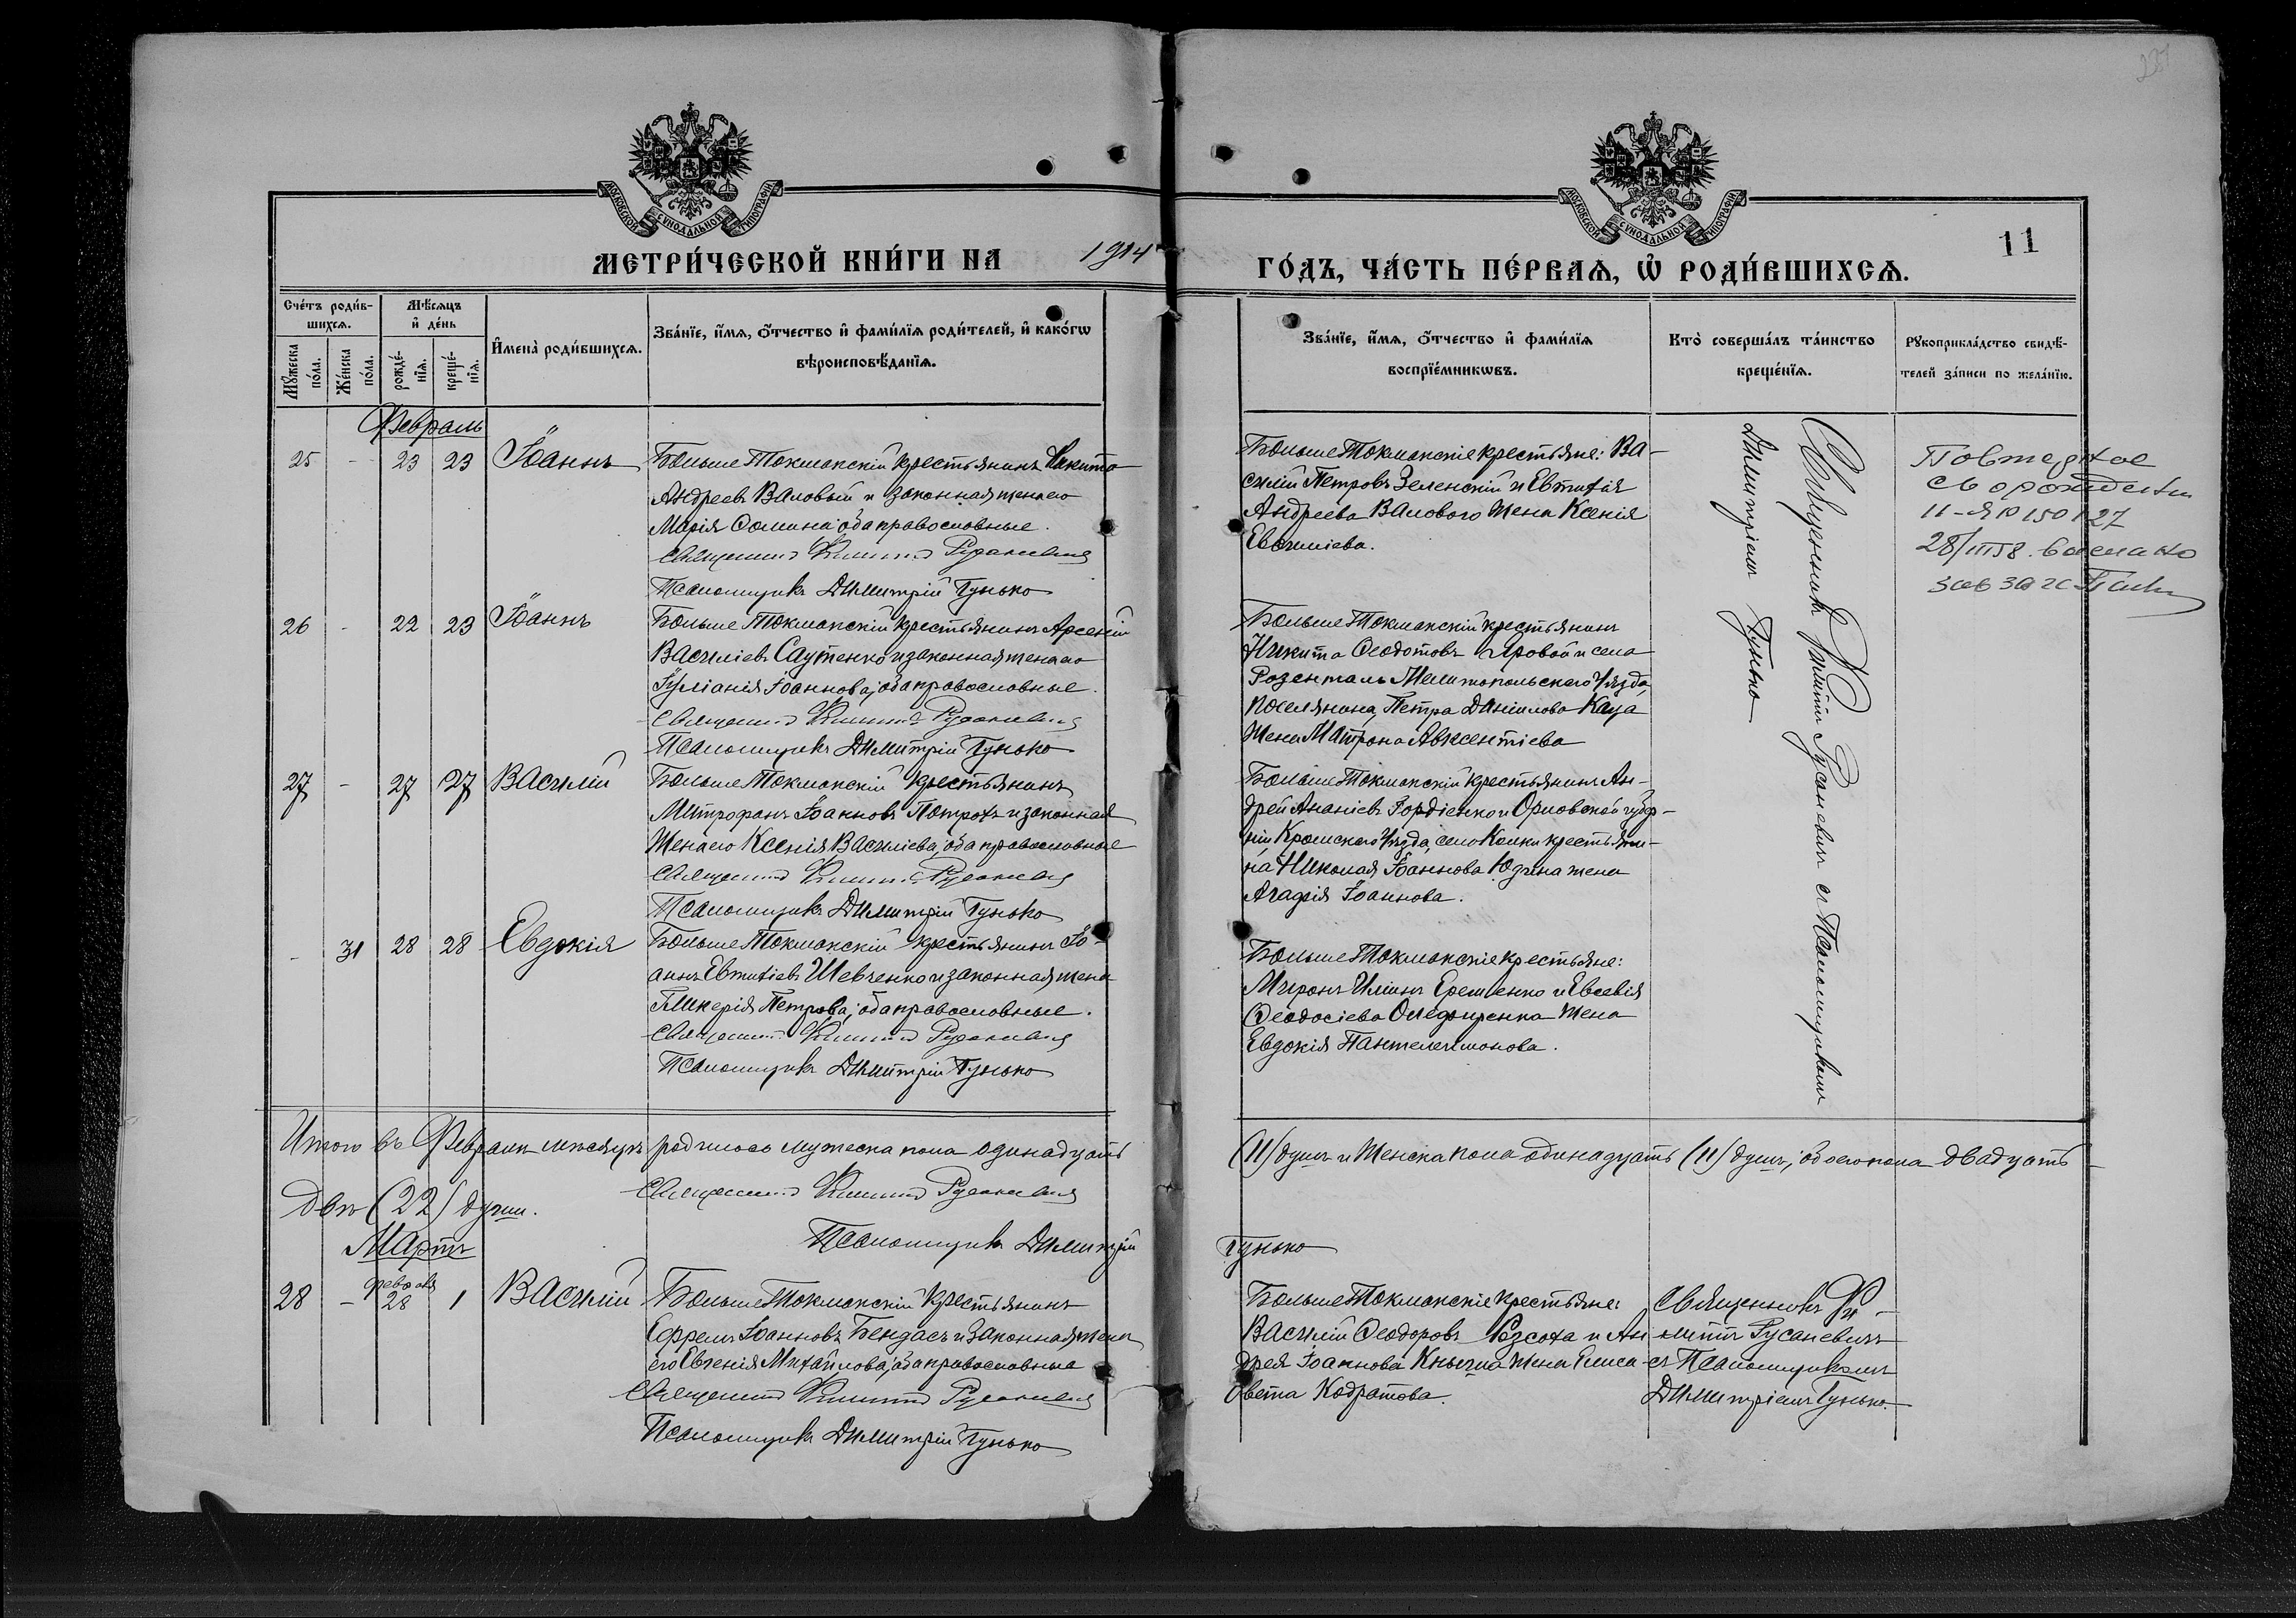 237
МОСКОВСКОЙ СѴНОДАЛЬНОЙ ТИПОГРАФІИ
МОСКОВСКОЙ СѴНОДАЛЬНОЙ ТИПОГРАФІИ
11
МЕТРИ́ЧЕСКОЙ КНИ́ГИ НА 1914
ГО́ДЪ, ЧА́СТЬ ПЕ́РВАѦ, Ѡ҆ РОДИ́ВШИХСѦ.
Сче́тъ роди́в-
шихсѧ.
Мѣ́сѧцъ
и҆ де́нь
Мꙋ́жеска по́ла.
Же́нска по́ла.
рожде́-нїѧ.
креще́-нїѧ.
И҆мена̀ роди́вшихсѧ.
Зва́нїе, и҆́мѧ, ѻ҆́тчество и҆ фами́лїѧ роди́телей, и҆ како́гѡ
вѣроисповѣ́данїѧ.
Зва́нїе, и҆́мѧ, ѻ҆́тчество и҆ фами́лїѧ
воспрїе́мникѡвъ.
Кто̀ соверша́лъ та́инство
креще́нїѧ.
Рꙋкоприкла́дство свидѣ́-
телей за́писи по жела́нїю.
Февраль
25 - 23 23 Іоаннъ
Больше Токмакскій крестьянинъ Никита
Андреевъ Валовый и законная жена его
Марія Ѳомина, оба православные.
Священникъ Филиппъ Русаневичъ
Псаломщикъ Димитрій Гунько
Больше Токмакскіе крестьяне: Ва-
силій Петровъ Зеленскій и Евтихія
Андреева Валового жена Ксенія
Евсигніева.
Священникъ Филиппъ Русаневичъ съ Псаломщикомъ
Димитріемъ Гунько
Повторное
св о рождении
II-ЯЮ 150127
28/III 58.
26 - 22 23 Іоаннъ
Больше Токмакскій крестьянинъ Арсеній
Василіевъ Саутенко и законная жена его
Іуліанія Іоаннова, оба православные.
Священникъ Филиппъ Русаневичъ
Псаломщикъ Димитрій Гунько
Больше Токмакскій крестьянинъ
Никита Ѳеодотовъ Яровой и села
Розенталь Мелитопольскаго Уѣзда,
поселянина Петра Даніилова Кауа
жена Матрона Авксентіева
27 - 27 27 Василій
Больше Токмакскій крестьянинъ
Митрофанъ Іоанновъ Потрохъ и законная
жена его Ксенія Василіева, оба православные
Священникъ Филиппъ Русаневичъ
Псаломщикъ Димитрій Гунько
Больше Токмакскій крестьянинъ Ан-
дрей Ананіевъ Гордіенко и Орловской губер-
ніи Кромскаго Уѣзда, село Колки крестьяни-
на Николая Іоаннова Юдина жена
Агафія Іоаннова.
- 31 28 28 Евдокія
Больше Токмакскій крестьянинъ Іо-
аннъ Евтихіевъ Шевченко и законная жена
Гликерія Петрова, оба православные.
Священникъ Филиппъ Русаневичъ
Псаломщикъ Димитрій Гунько
Больше Токмакскіе крестьяне:
Миронъ Иліинъ Еременко и Евсевія
Ѳеодосіева Олефиренка жена
Евдокія Пантелеимонова.
Итого въ Февралѣ мѣсяцѣ родилось мужеска пола одинадцать (11) душъ и женска пола одинадцать (11) душъ, обоего пола двадцать
двѣ (22) души.
Священникъ Филиппъ Русаневичъ
Псаломщикъ Димитрій Гунько
Мартъ
28 - февраля 28 1 Василій
Больше Токмакскій крестьянинъ
Ефремъ Іоанновъ Бендасъ и законная жена
его Евгенія Михайлова, оба православные
Священникъ Филиппъ Русаневичъ
Псаломщикъ Димитрій Гунько
Больше Токмакскіе крестьяне:
Василій Ѳеодоровъ Розсоха и Ан-
дрея Іоаннова Кныша жена Елиса-
вета Кодратова.
Священникъ Фи-
липпъ Русаневичъ
съ Псаломщикомъ
Димитріемъ Гунько.